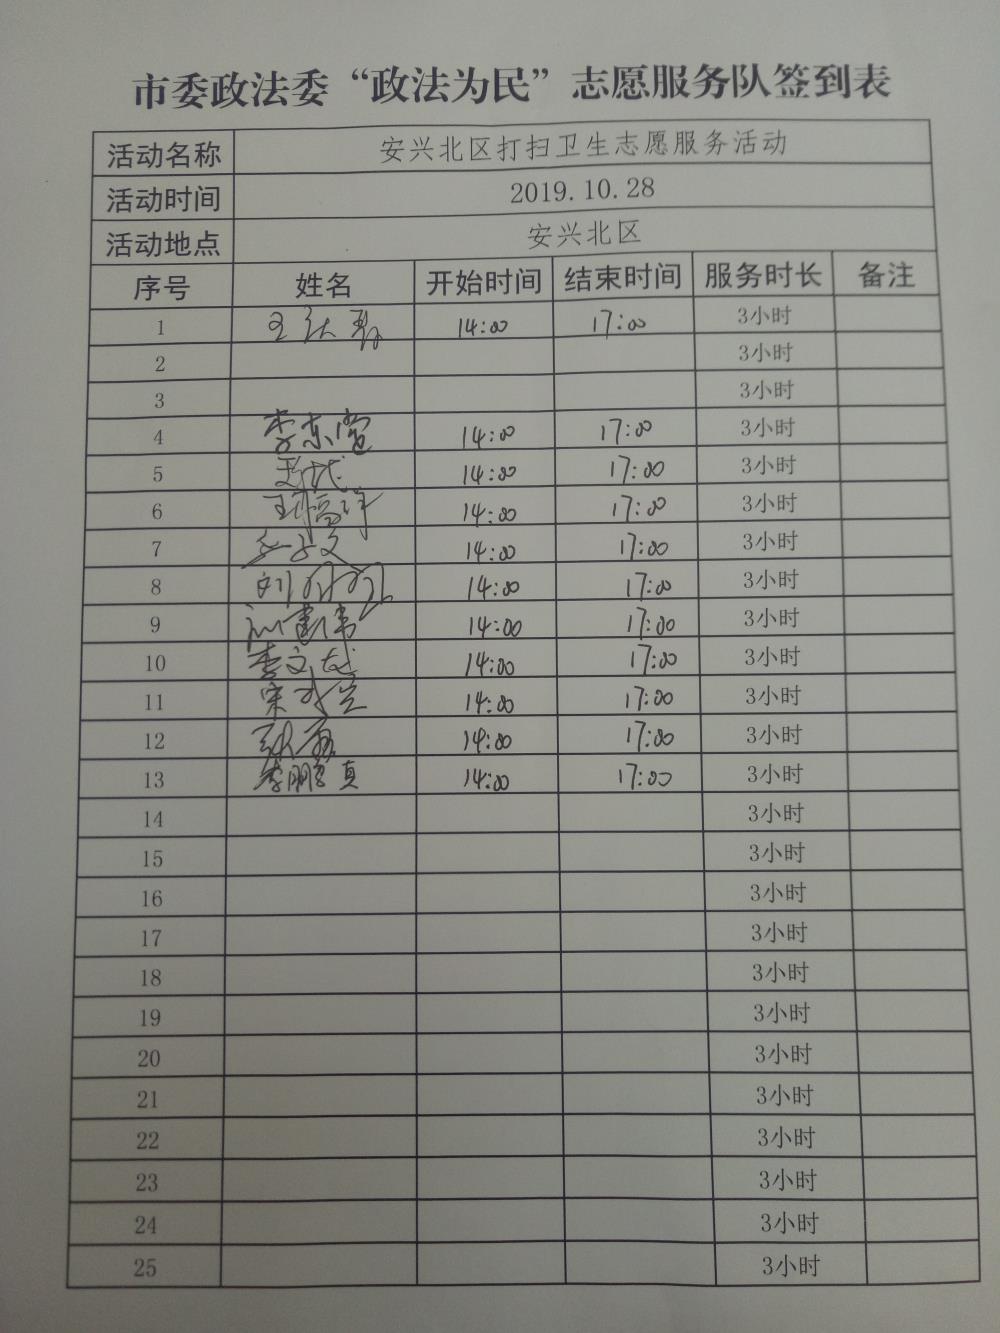 市委政法委“政法为民”志愿服务队签到表
活动名称 安兴北区打扫卫生志愿服务活动
活动时间 2019.10.28
活动地点 安兴北区
序号 姓名 开始时间 结束时间 服务时长 备注
1 14:00 17:00 3小时
2 3小时
3 3小时
4 李东莹 14:00 17:00 3小时
5 14:00 17:00 3小时
6 14:00 17:00 3小时
7 14:00 17:00 3小时
8 14:00 17:00 3小时
9 14:00 17:00 3小时
10 李文龙 14:00 17:00 3小时
11 14:00 17:00 3小时
12 14:00 17:00 3小时
13 李鹏真 14:00 17:00 3小时
14 3小时
15 3小时
16 3小时
17 3小时
18 3小时
19 3小时
20 3小时
21 3小时
22 3小时
23 3小时
24 3小时
25 3小时